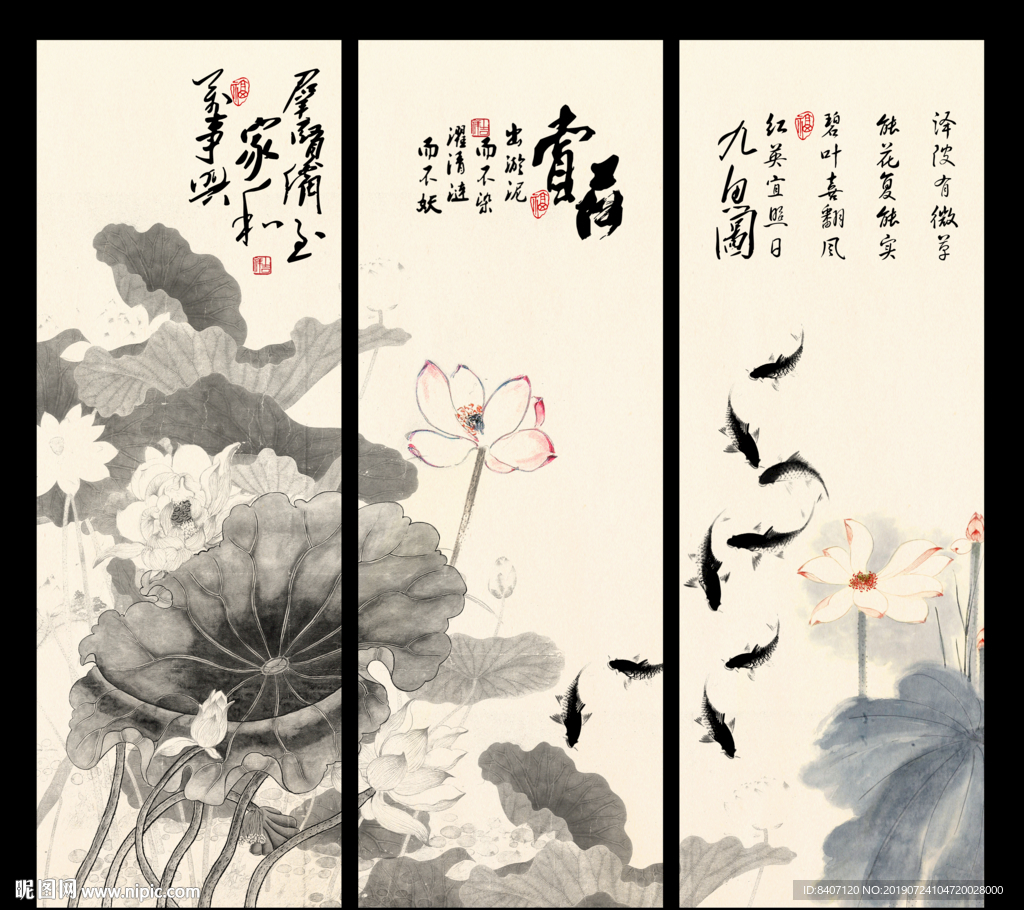 羣賢備至
家和
萬事興
賞荷
出淤泥
而不染
濯清涟
而不妖
泽陂有微草
能花复能实
碧叶喜翻风
红英宜照日
九魚圖
昵图网 www.nipic.com
ID:8407120 NO:20190724104720028000